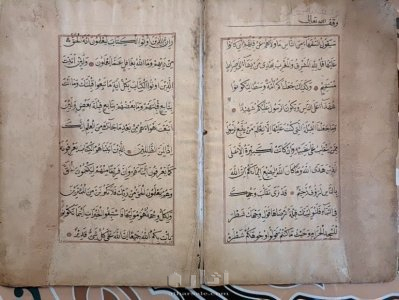 وقف لله تعالى
سيقول السفهاء من الناس ما وليهم عن قبلتهم التي كانوا
عليها قل لله المشرق والمغرب يهدي من يشاء الى صراط
مستقيم وكذلك جعلناكم امة وسطا لتكونوا
شهداء على الناس ويكون الرسول عليكم شهيدا
وما جعلنا القبلة التي كنت عليها الا لنعلم من يتبع الرسول
ممن ينقلب على عقبيه وان كانت لكبيرة الا على
الذين هدى الله وما كان الله ليضيع ايمانكم ان الله
بالناس لرؤف رحيم قد نرى تقلب وجهك
في السماء فلنولينك قبلة ترضيها فول وجهك شطر
المسجد الحرام وحيث ما كنتم فولوا وجوهكم شطره
وان الذين اوتوا الكتاب ليعلمون انه الحق
من ربهم وما الله بغافل عما يعملون ولئن اتيت
الذين اوتوا الكتاب بكل اية ما تبعوا قبلتك وما انت
بتابع قبلتهم وما بعضهم بتابع قبلة بعض ولئن
اتبعت اهواءهم من بعد ما جاءك من العلم انك
اذا لمن الظالمين الذين اتيناهم الكتاب يعرفونه
كما يعرفون ابناءهم وان فريقا منهم ليكتمون الحق
وهم يعلمون الحق من ربك فلا تكونن من الممترين
ولكل وجهة هو موليها فاستبقوا الخيرات اين ما تكونوا
يات بكم الله جميعا ان الله على كل شيء قدير